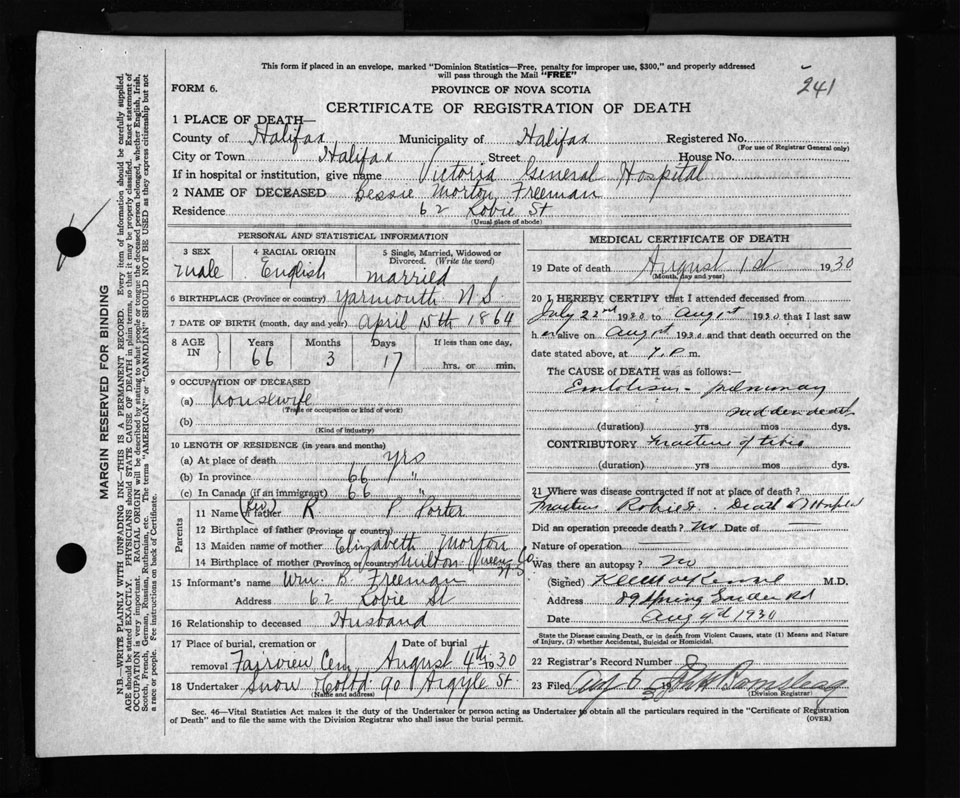 241
This form if placed in an envelope, marked "Dominion Statistics—Free, penalty for improper use, $300," and properly addressed
will pass through the Mail "FREE"
FORM 6.
PROVINCE OF NOVA SCOTIA
CERTIFICATE OF REGISTRATION OF DEATH
1 PLACE OF DEATH—
County of Halifax Municipality of Halifax Registered No.
(For use of Registrar General only)
City or Town Halifax Street House No.
If in hospital or institution, give name Victoria General Hospital
2 NAME OF DECEASED Bessie Morton Freeman
Residence 62 Robie St
(Usual place of abode)
PERSONAL AND STATISTICAL INFORMATION
3 SEX 4 RACIAL ORIGIN 5 Single, Married, Widowed or
Divorced. (Write the word)
male English married
6 BIRTHPLACE (Province or country) Yarmouth N.S.
7 DATE OF BIRTH (month, day and year) April 15th 1864
8 AGE IN Years Months Days If less than one day,
66 3 17 hrs. or min.
9 OCCUPATION OF DECEASED
(a) Housewife
(Trade or occupation or kind of work)
(b)
(Kind of industry)
10 LENGTH OF RESIDENCE (in years and months)
(a) At place of death yrs
(b) In province 66 "
(c) In Canada (if an immigrant) 66 "
Parents
11 Name of father (Rev) R P Porter
12 Birthplace of father (Province or country)
13 Maiden name of mother Elizabeth Morton
14 Birthplace of mother (Province or country) Milton Queens Co N.S.
15 Informant's name Wm. B. Freeman
Address 62 Robie St
16 Relationship to deceased Husband
17 Place of burial, cremation or Date of burial
removal Fairview Cem. August 4th 1930
18 Undertaker Snow & Co Ltd 90 Argyle St
(Name and address)
MEDICAL CERTIFICATE OF DEATH
19 Date of death August 1st 1930
(Month, day and year)
20 I HEREBY CERTIFY that I attended deceased from
July 22nd 1930 to Aug 1st 1930 that I last saw
h er alive on Aug 1st 1930 and that death occurred on the
date stated above, at 7. P. m.
The CAUSE of DEATH was as follows:—
Embolism - pulmonary
sudden death
(duration) yrs mos dys.
CONTRIBUTORY Fracture of tibia
(duration) yrs mos dys.
21 Where was disease contracted if not at place of death?
Fracture Robie St. Death V G Hospital
Did an operation precede death? No Date of —
Nature of operation —
Was there an autopsy? No
(Signed) M.D.
Address 89 Spring Garden Rd
Date Aug 4th 1930
State the Disease causing Death, or in death from Violent Causes, state (1) Means and Nature
of Injury, (2) whether Accidental, Suicidal or Homicidal.
22 Registrar's Record Number
23 Filed Aug 6 1930
(Division Registrar)
Sec. 46—Vital Statistics Act makes it the duty of the Undertaker or person acting as Undertaker to obtain all the particulars required in the "Certificate of Registration
of Death" and to file the same with the Division Registrar who shall issue the burial permit.
(OVER)
MARGIN RESERVED FOR BINDING
N.B.—WRITE PLAINLY WITH UNFADING INK—THIS IS A PERMANENT RECORD. Every item of information should be carefully supplied.
AGE should be stated EXACTLY. PHYSICIANS should STATE CAUSE OF DEATH in plain terms, so that it may be properly classified. Exact statement of
OCCUPATION is very important. RACIAL ORIGIN will be described by stating to what people or tongue the deceased person belonged, whether English, Irish,
Scotch, French, German, Russian, Ruthenian, etc. The terms "AMERICAN" or "CANADIAN" SHOULD NOT BE USED as they express citizenship but not
a race or people. See instructions on back of Certificate.